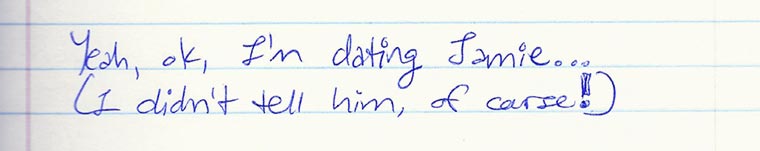 Yeah, ok, I'm dating Jamie...
(I didn't tell him, of carse!)